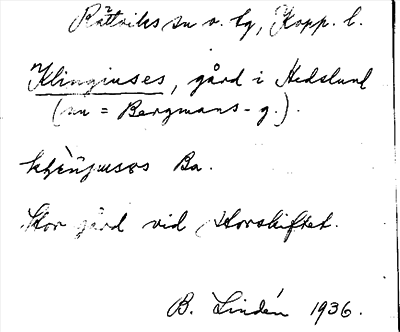 Rättviks sn o. tg, Kopp. l.
Klingiuses, gård i Hedslund
(nu = Bergmans-g.).
Ba.
Stor gård vid Storskiftet.
B. Lindén 1936.